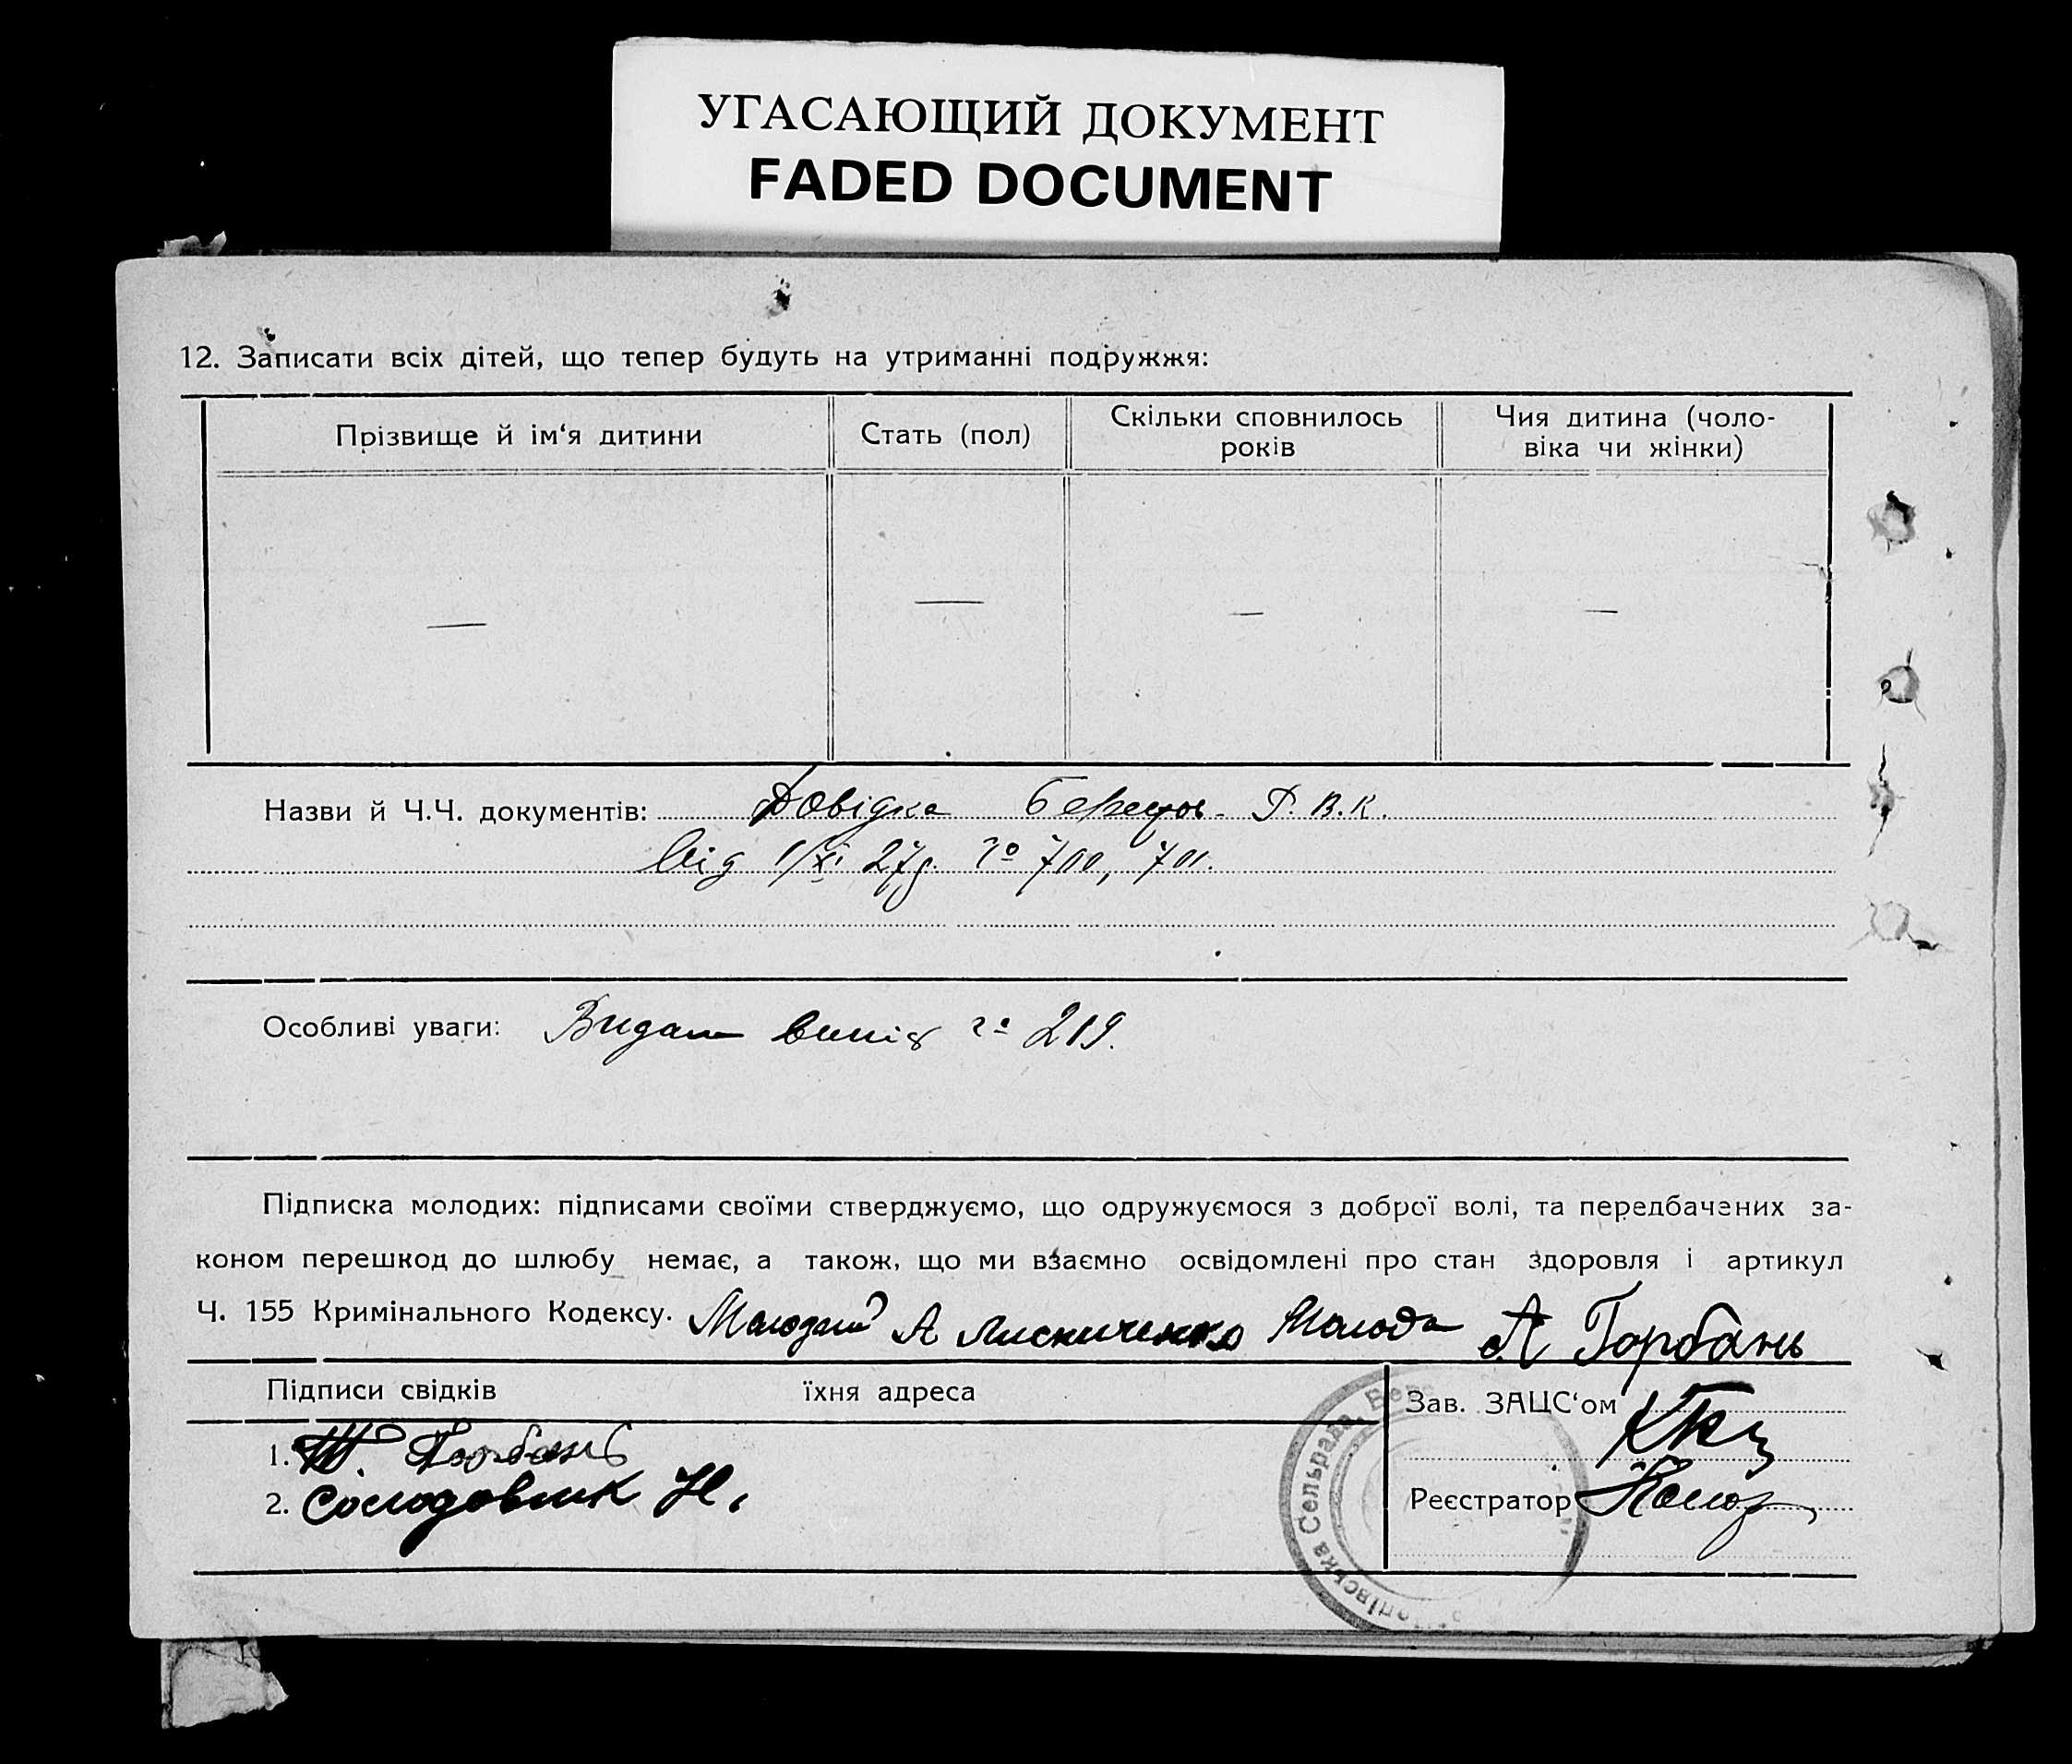 УГАСАЮЩИЙ ДОКУМЕНТ
FADED DOCUMENT
12. Записати всіх дітей, що тепер будуть на утриманні подружжя:
Прізвище й ім‘я дитини
Стать (пол)
Скільки сповнилось
років
Чия дитина (чоло-
віка чи жінки)
— — — —
Назви й Ч.Ч. документів: Довідка Р.В.К.
Від 1/XI 27р. № 700, 701.
Особливі уваги: Видані випіс № 219.
Підписка молодих: підписами своїми стверджуємо, що одружуємося з доброї волі, та передбачених за-
коном перешкод до шлюбу немає, а також, що ми взаємно освідомлені про стан здоровля і артикул
Ч. 155 Кримінального Кодексу. Молодий А Лисниченко Молода А Горбань
Підписи свідків їхня адреса
Зав. ЗАЦС‘ом
1. Горбань
2. Солодовник Н.
Реєстратор
Сельрада, Бере